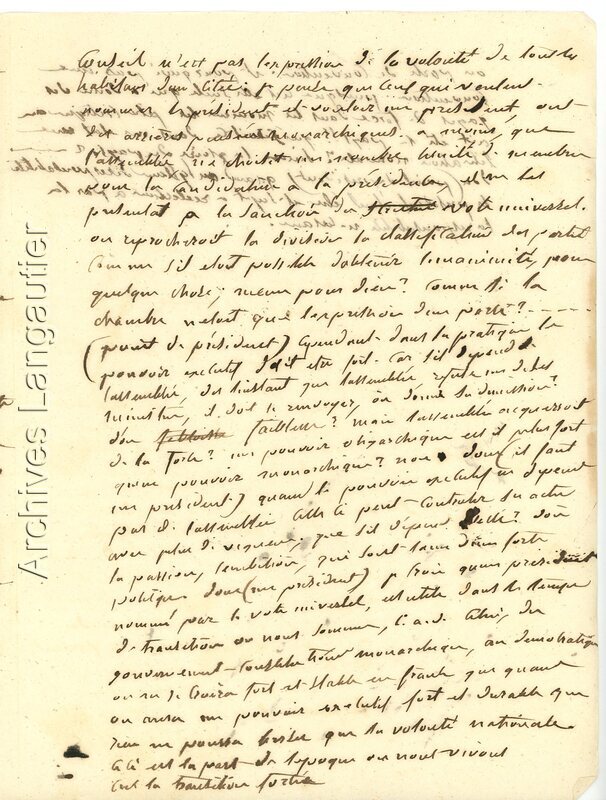 Conseil n'est pas l'expression de la volonté de tous les
habitans d'un Cité; penser que ceux qui veulent
nommer le président et vouloir un président ont
des arrieres monarchiques. a moins, que
l'assemblée ne choisit membres
pour la candidature a la présidence et ne les
présentat a la Sanction du vote universel.
on reprocheroit la division la classification des partis
Comme s'il etoit possible d'obtenir l'unanimité, pour
quelque chose; meme pour dieu? Comme si la
chambre n'etoit que l'expression d'un parti?
(point de président) Cependant dans la pratique le
pouvoir executif doit etre fort. Car s'il depend de
l'assemblée, des l'instant que l'assemblée, refuse un de ses
ministres, il doit le renvoyer, ou donner sa demission?
d'ou faiblesse? mais l'assemblée acquerroit
de la force? un pouvoir oligarchique est il plus fort
qu'un pouvoir monarchique? non donc (il faut
un président) quand le pouvoir executif ne depend
pas de l'assemblée elle peut Controler ses actes
avec plus de vigueur que s'il depend d'elle? d'ou
la passion, l'ambition, qui sont
politiques donc (un président) je crois qu'un président
nommé par le vote universel, est utile dans le temps
de transition ou nous sommes, C. a. d. Ainsi, du
gouvernement Constitutionnel monarchique, au democratique
on ne se Croira fort et stable en france que quand
on aura un pouvoir executif fort et durable que
rien ne pourra briser que la volonté nationale
Là est la part de l'epoque ou nous vivons
C'est la transition
Archives Langautier